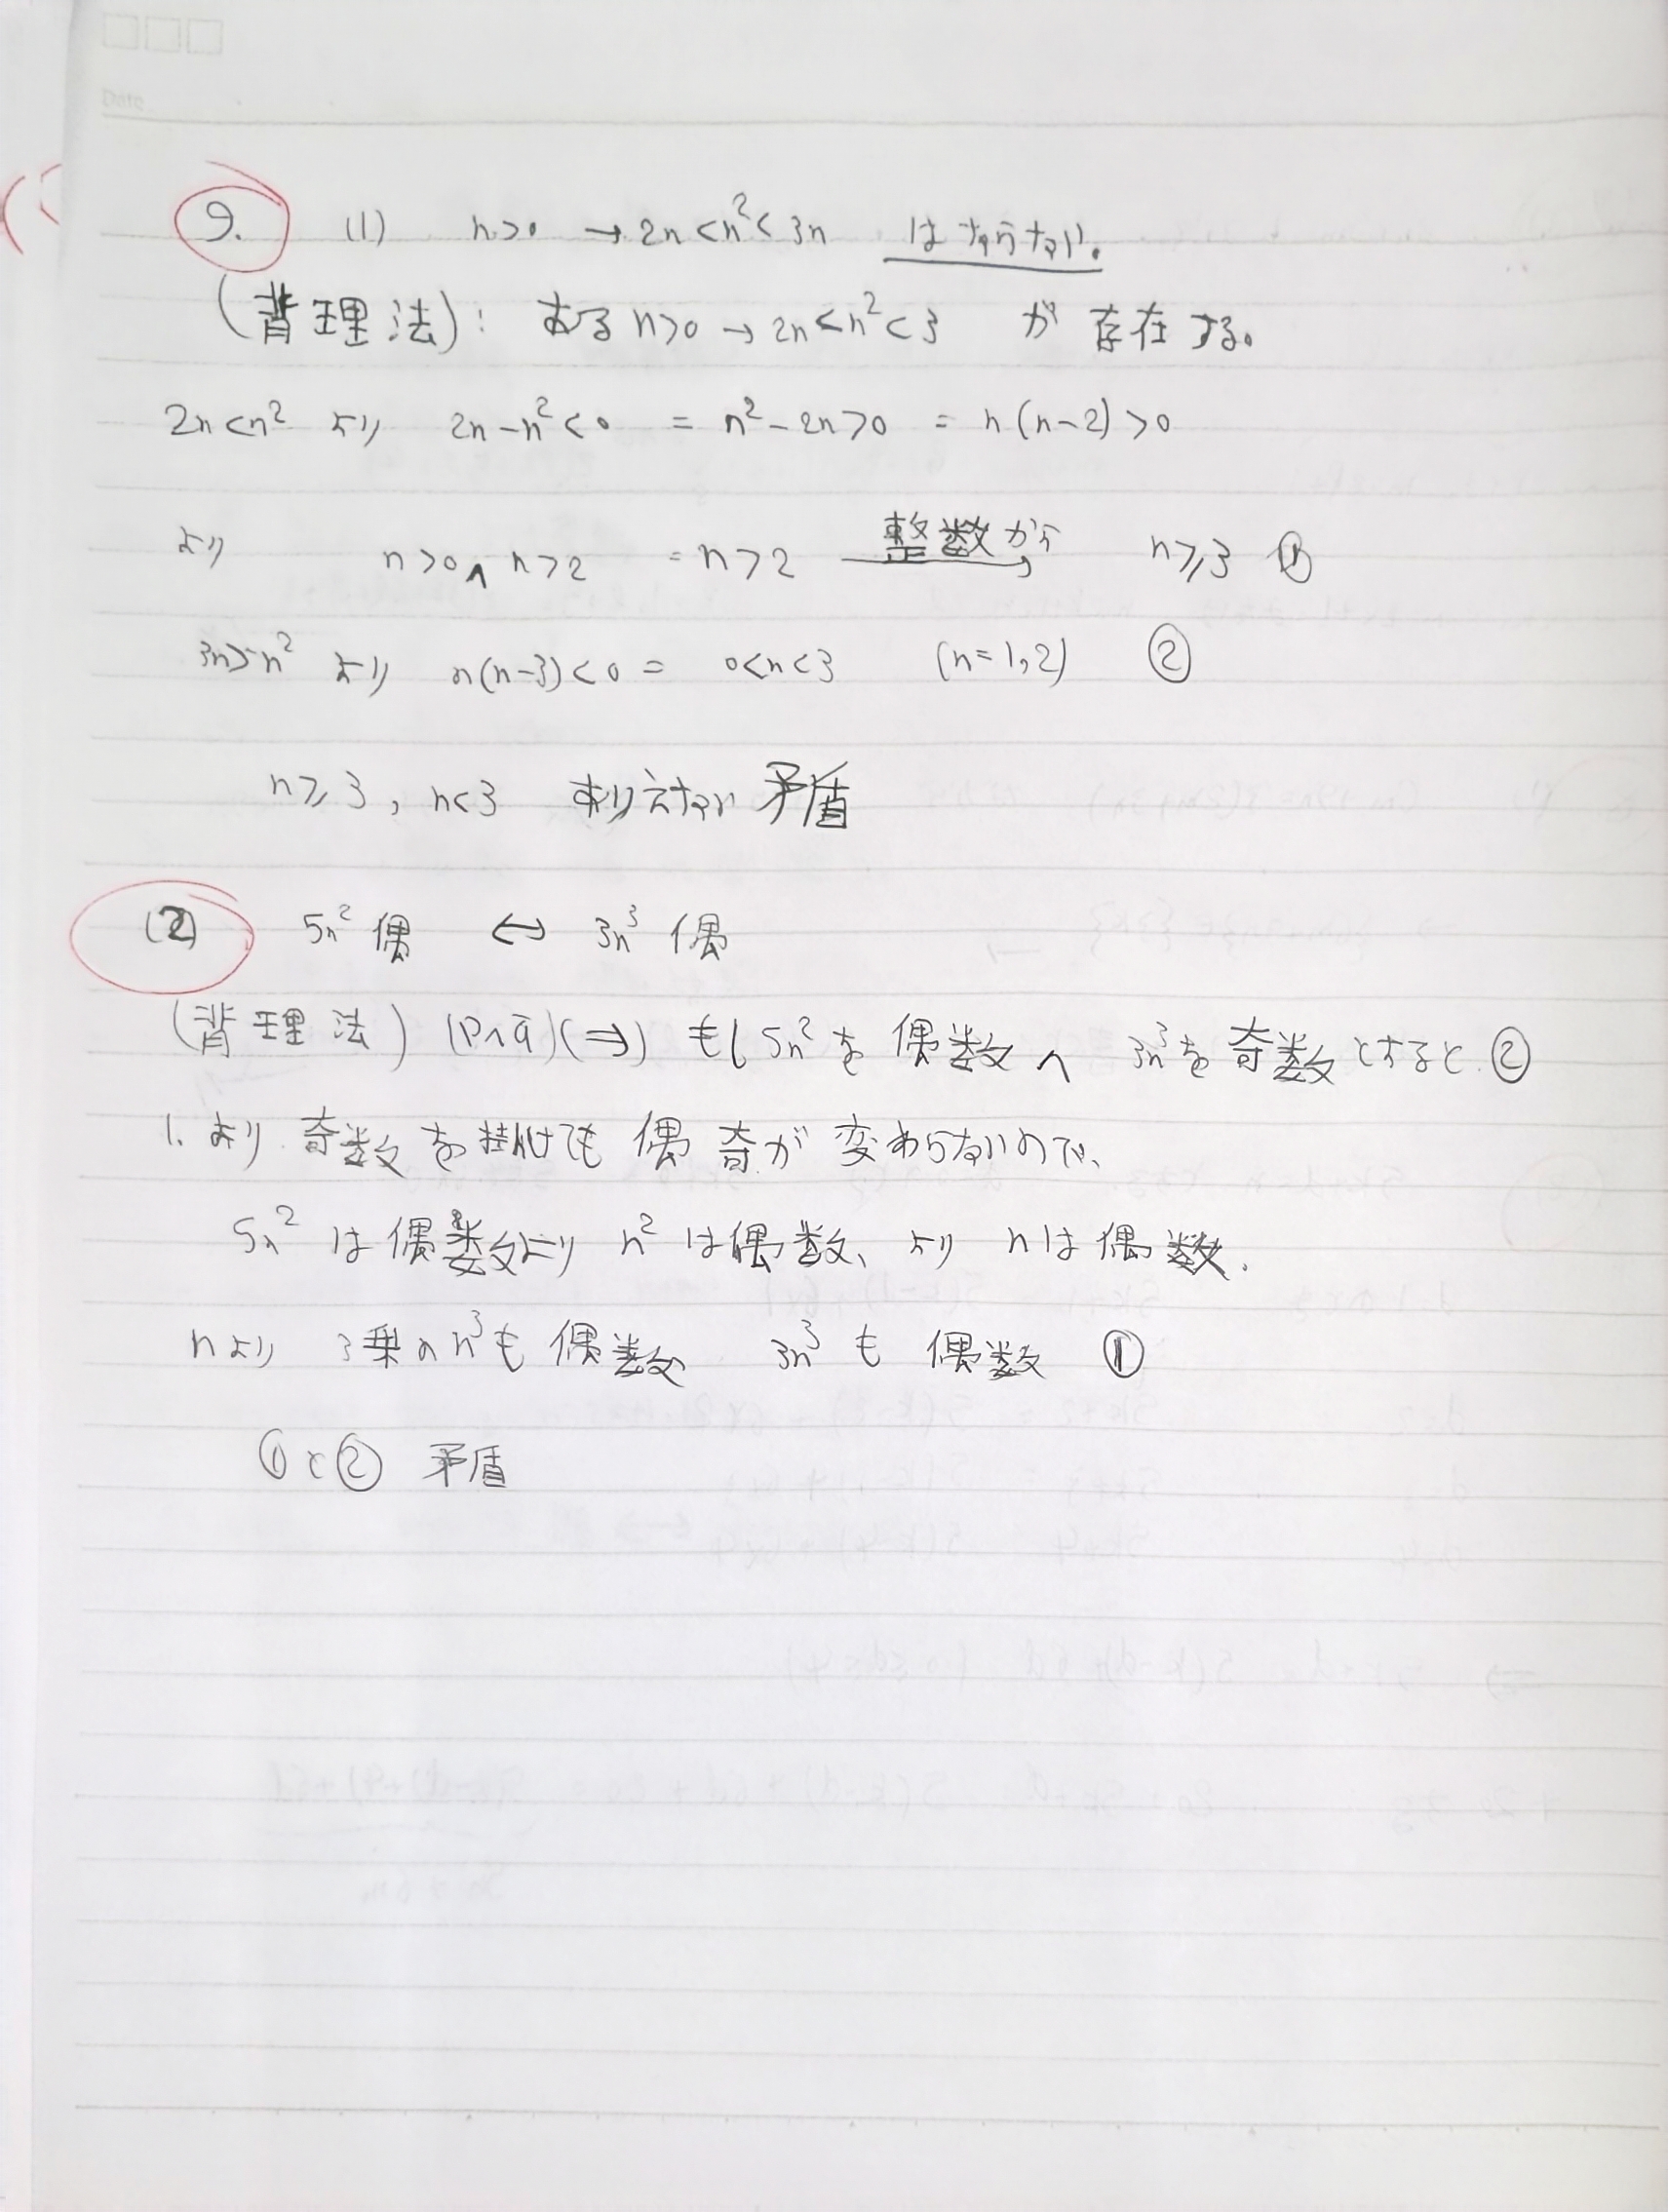 Date
9. (1) n>0 → 2n<n²<3n はならない。
(背理法): ある n>0 → 2n<n²<3 が 存在する。
2n<n² より 2n-n²<0 = n²-2n>0 = n(n-2)>0
より n>0 ∧ n>2 = n>2 整数から→ n≥3 ①
3n>n² より n(n-3)<0 = 0<n<3 (n=1,2) ②
n≥3, n<3 あり得ない 矛盾
(2) 5n² 偶 ↔ 3n³ 偶
(背理法) (P∧q̄)(⇒) もし 5n²を 偶数 ∧ 3n³を 奇数とすると ②
1. より 奇数を掛けても 偶奇が 変わらないので、
5n² は偶数より n² は偶数、より nは偶数.
nより 3乗のn³も偶数 3n³も 偶数 ①
①と② 矛盾